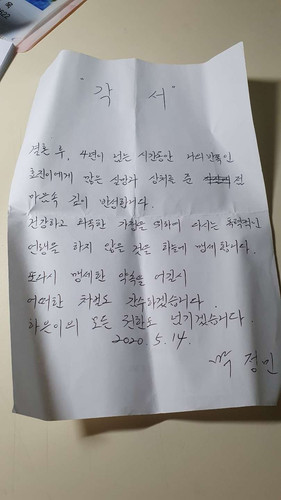 "각 서"
결혼 후, 4년이 넘는 시간동안 나의 반쪽인
효진이에게 많은 실망과 상처를 준 전
마음속 깊이 반성합니다.
건강하고 화목한 가정을 위하여 다시는 폭력적인
언행을 하지 않을 것을 하늘에 맹세합니다.
또다시 맹세한 약속을 어길시
어떠한 처벌도 감수하겠습니다.
하은이의 모든 권한도 넘기겠습니다.
2020. 5. 14.
정민